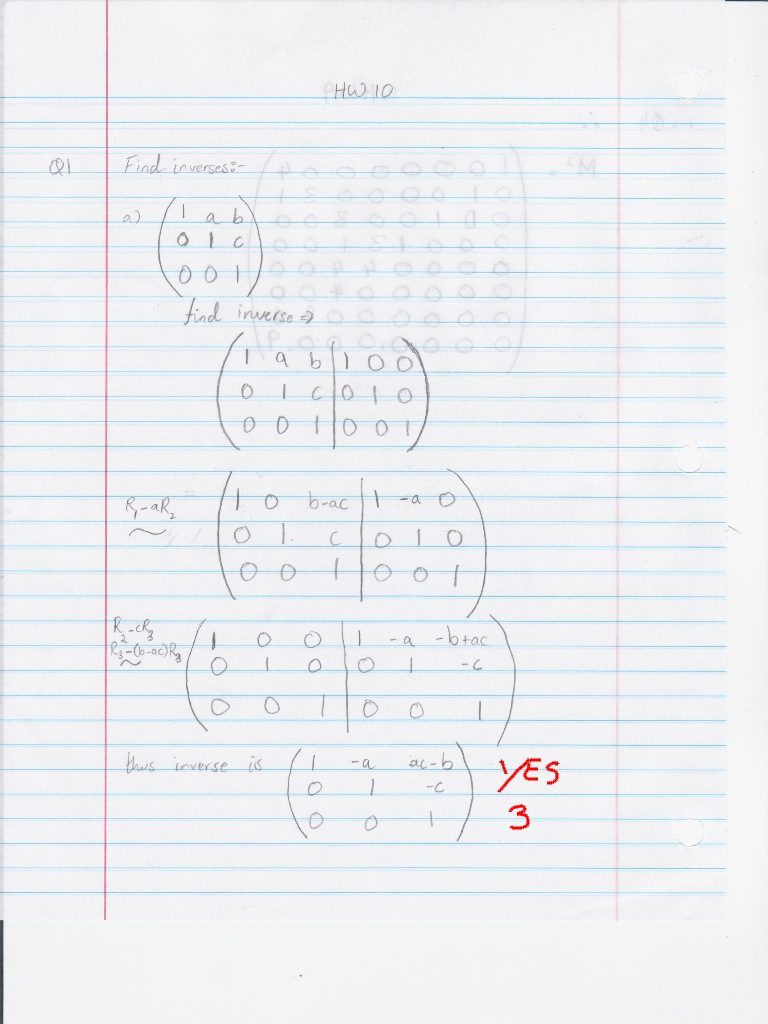 HW 10
Q1 Find inverses:-
a) ( 1 a b
0 1 c
0 0 1 )
find inverse ⇒
( 1 a b | 1 0 0
0 1 c | 0 1 0
0 0 1 | 0 0 1 )
R₁-aR₂ ~ ( 1 0 b-ac | 1 -a 0
0 1 c | 0 1 0
0 0 1 | 0 0 1 )
R₂-cR₃
R₃-(b-ac)R₃ ~
( 1 0 0 | 1 -a -b+ac
0 1 0 | 0 1 -c
0 0 1 | 0 0 1 )
thus inverse is ( 1 -a ac-b
0 1 -c
0 0 1 )
YES
3